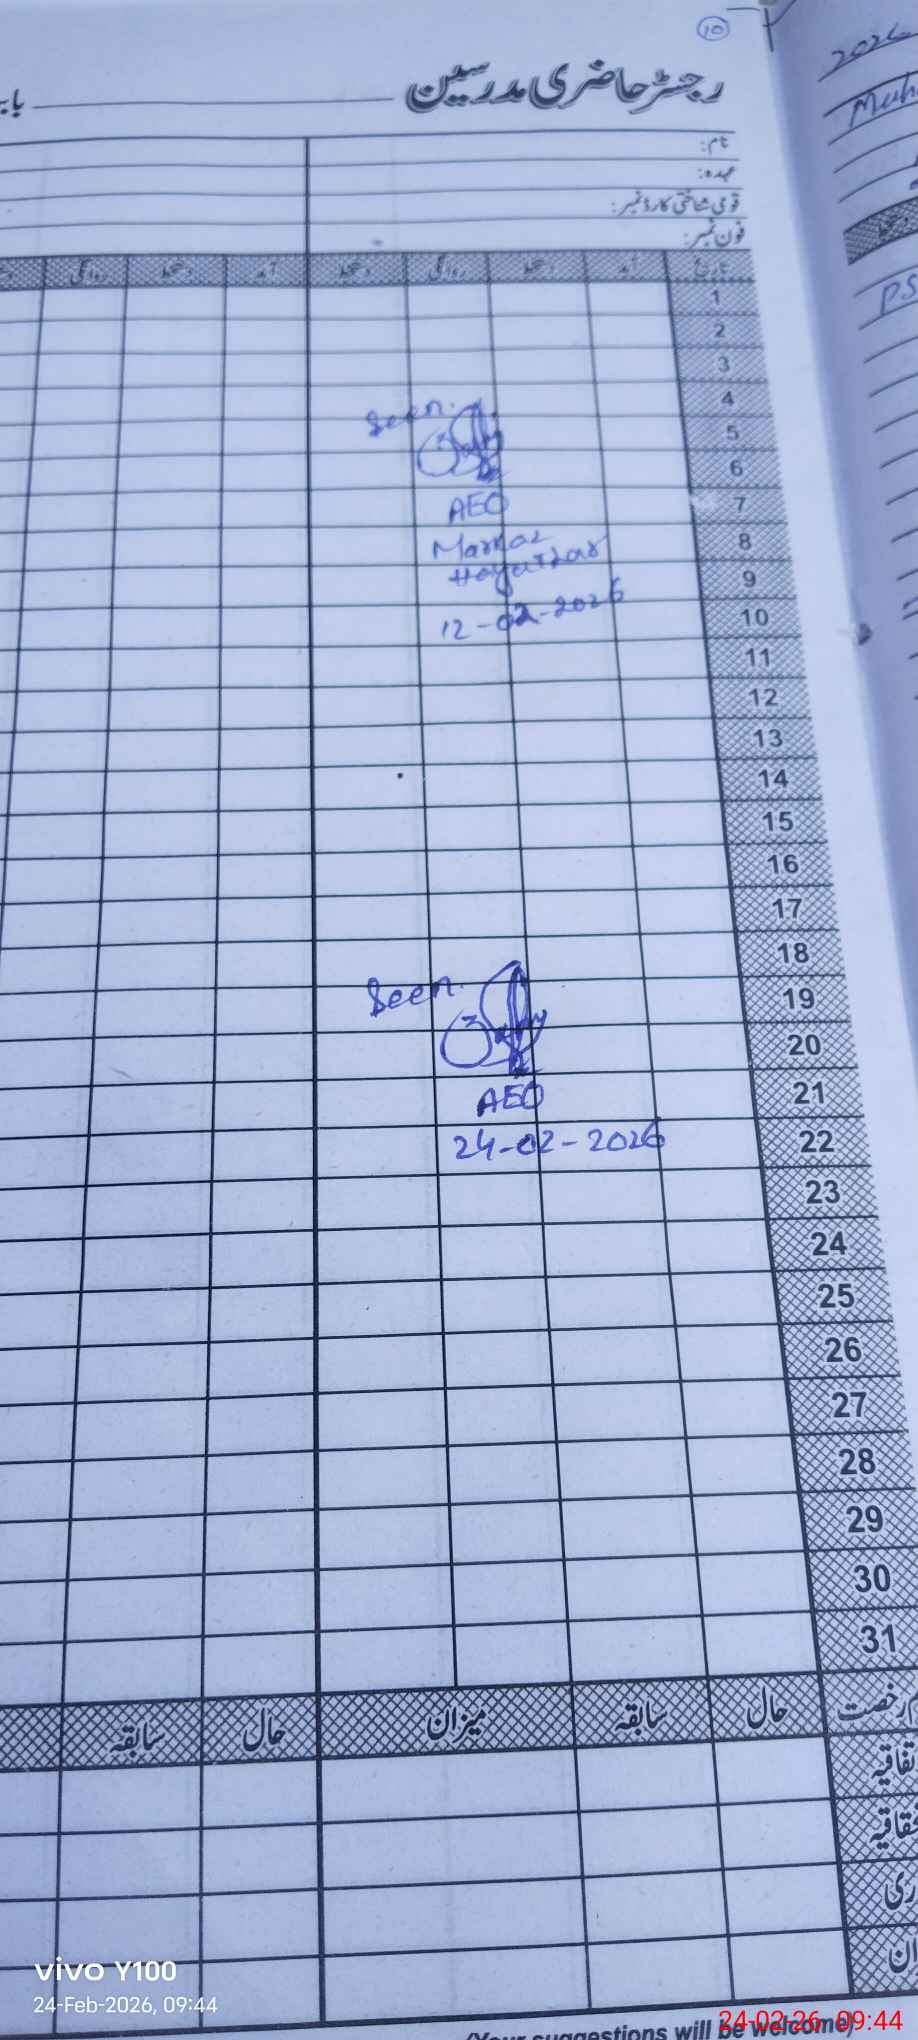 10
رجسٹر حاضری مدرسین
نام:
عہدہ:
قومی شناختی کارڈ نمبر:
فون نمبر:
تاریخ آمد دستخط روانگی دستخط آمد دستخط روانگی
1
2
3
4
Seen.
5
6
AEO
7
Markaz
8
9
12-02-2026
10
11
12
13
14
15
16
17
18
Seen.
19
20
AEO
21
24-02-2026
22
23
24
25
26
27
28
29
30
31
رخصت حال سابقہ میزان حال سابقہ
vivo Y100
24-Feb-2026, 09:44
24-02-26 09:44
suggestions will be welcome)
2026